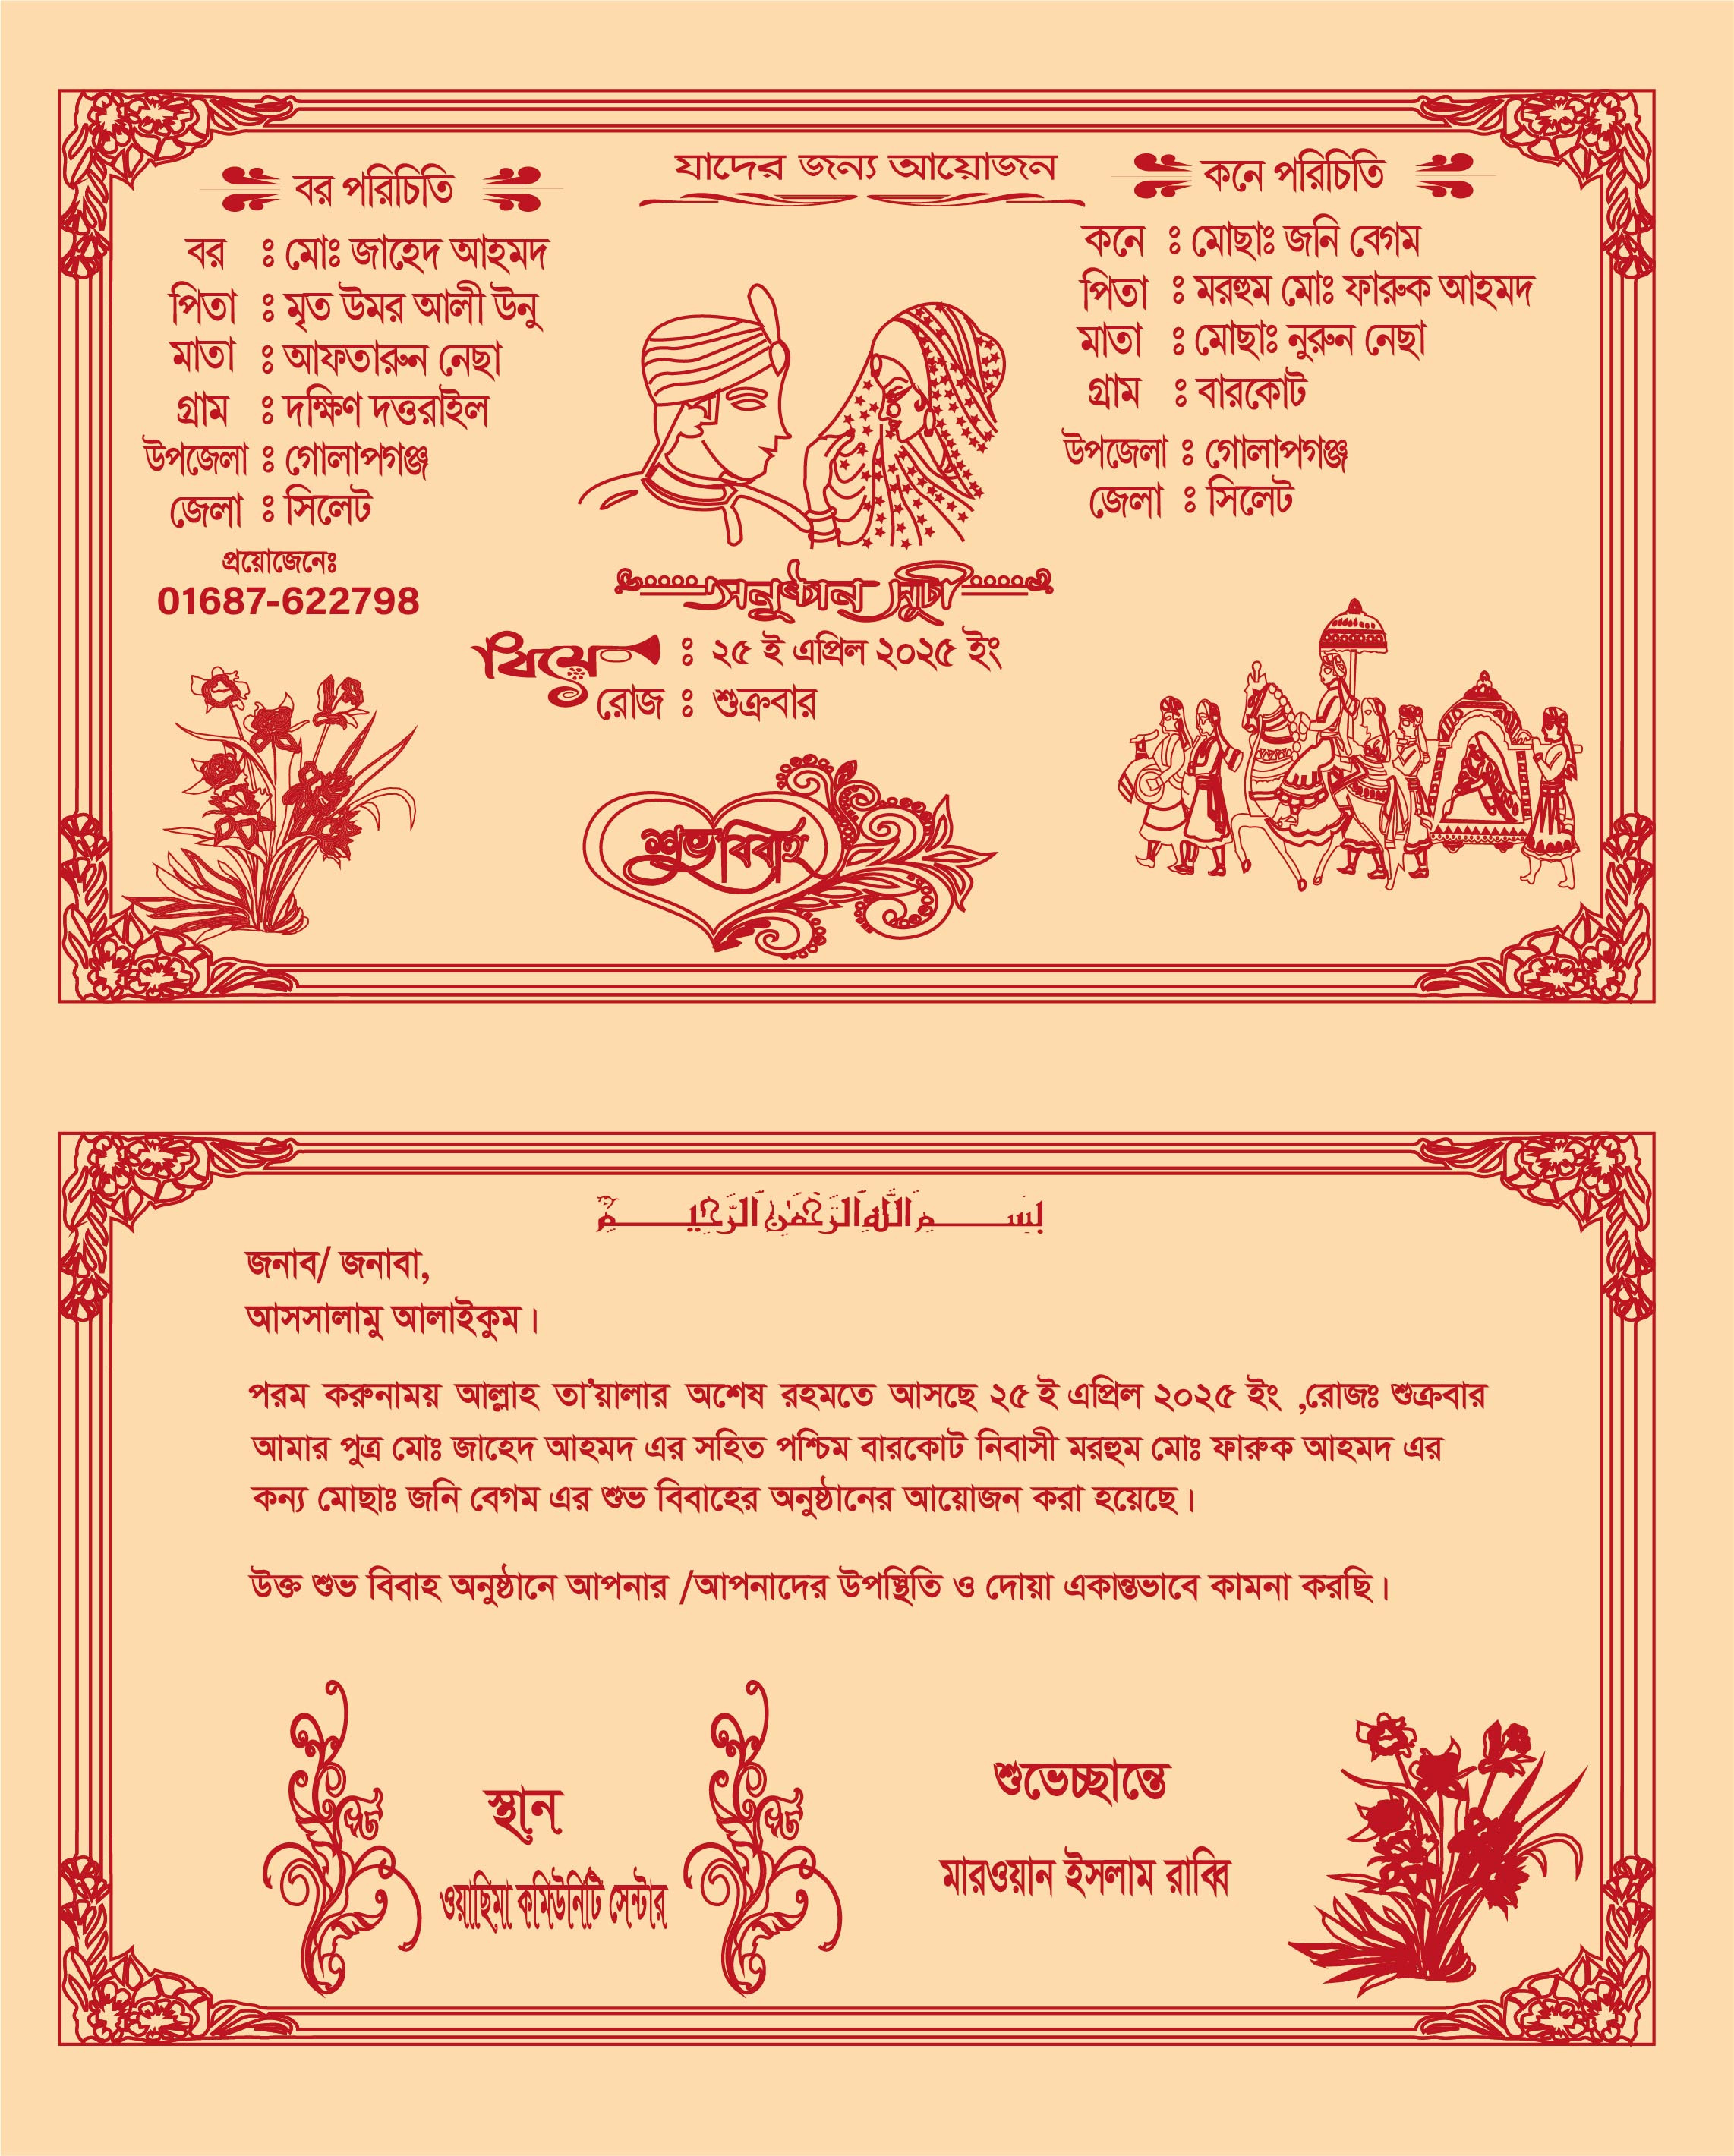 যাদের জন্য আয়োজন
বর পরিচিতি
বর ঃ মোঃ জাহেদ আহমদ
পিতা ঃ মৃত উমর আলী উনু
মাতা ঃ আফতারুন নেছা
গ্রাম ঃ দক্ষিণ দত্তরাইল
উপজেলা ঃ গোলাপগঞ্জ
জেলা ঃ সিলেট
প্রয়োজেনেঃ
01687-622798
কনে পরিচিতি
কনে ঃ মোছাঃ জনি বেগম
পিতা ঃ মরহুম মোঃ ফারুক আহমদ
মাতা ঃ মোছাঃ নুরুন নেছা
গ্রাম ঃ বারকোট
উপজেলা ঃ গোলাপগঞ্জ
জেলা ঃ সিলেট
অনুষ্ঠান সূচী
বিয়ে ঃ ২৫ ই এপ্রিল ২০২৫ ইং
রোজ ঃ শুক্রবার
শুভ বিবাহ
بِسْمِ اللَّهِ الرَّحْمَٰنِ الرَّحِيمِ
জনাব/ জনাবা,
আসসালামু আলাইকুম।
পরম করুনাময় আল্লাহ তা’য়ালার অশেষ রহমতে আসছে ২৫ ই এপ্রিল ২০২৫ ইং ,রোজঃ শুক্রবার
আমার পুত্র মোঃ জাহেদ আহমদ এর সহিত পশ্চিম বারকোট নিবাসী মরহুম মোঃ ফারুক আহমদ এর
কন্য মোছাঃ জনি বেগম এর শুভ বিবাহের অনুষ্ঠানের আয়োজন করা হয়েছে।
উক্ত শুভ বিবাহ অনুষ্ঠানে আপনার /আপনাদের উপস্থিতি ও দোয়া একান্তভাবে কামনা করছি।
স্থান
ওয়াছিমা কমিউনিটি সেন্টার
শুভেচ্ছান্তে
মারওয়ান ইসলাম রাব্বি